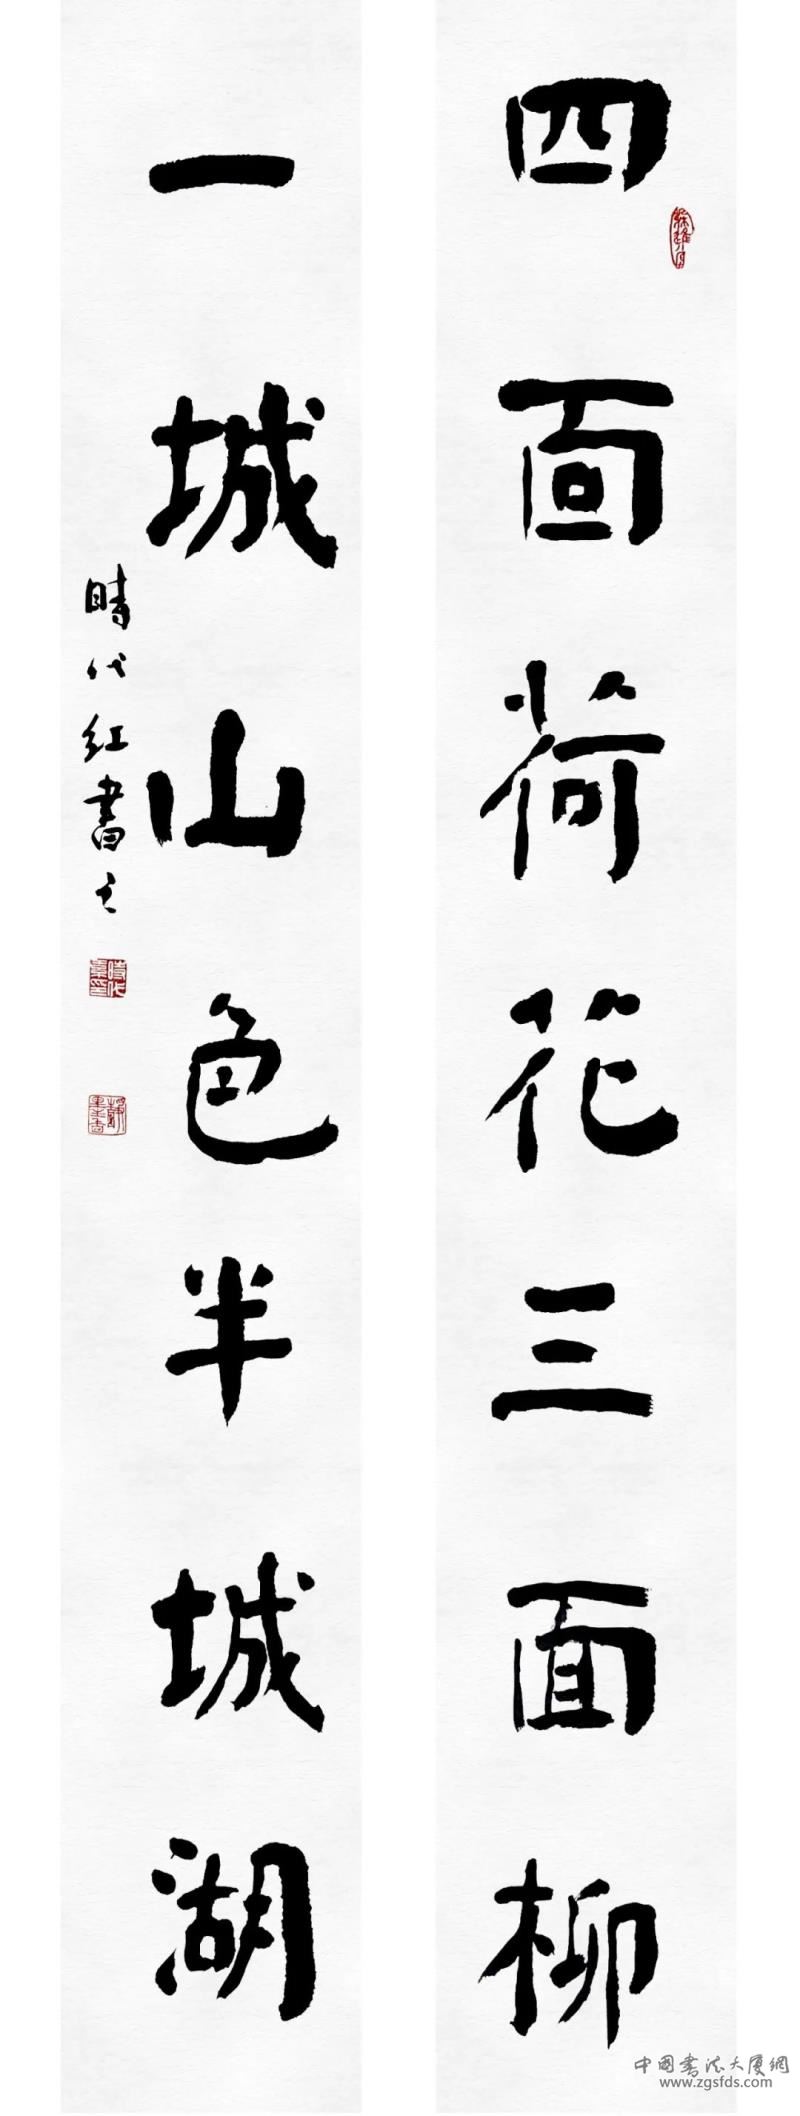 四面荷花三面柳
一城山色半城湖
時代红書之
中國書法大廈網
www.zgsfds.com